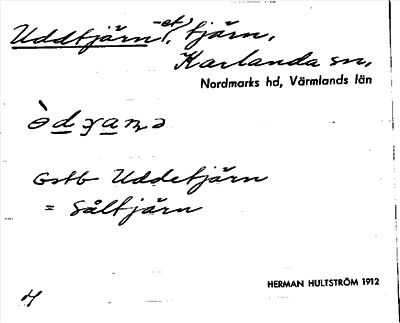 Uddtjärn(-et), tjärn,
Karlanda sn,
Nordmarks hd, Värmlands län
Gstb Uddetjärn
= Såltjärn
HERMAN HULTSTRÖM 1912